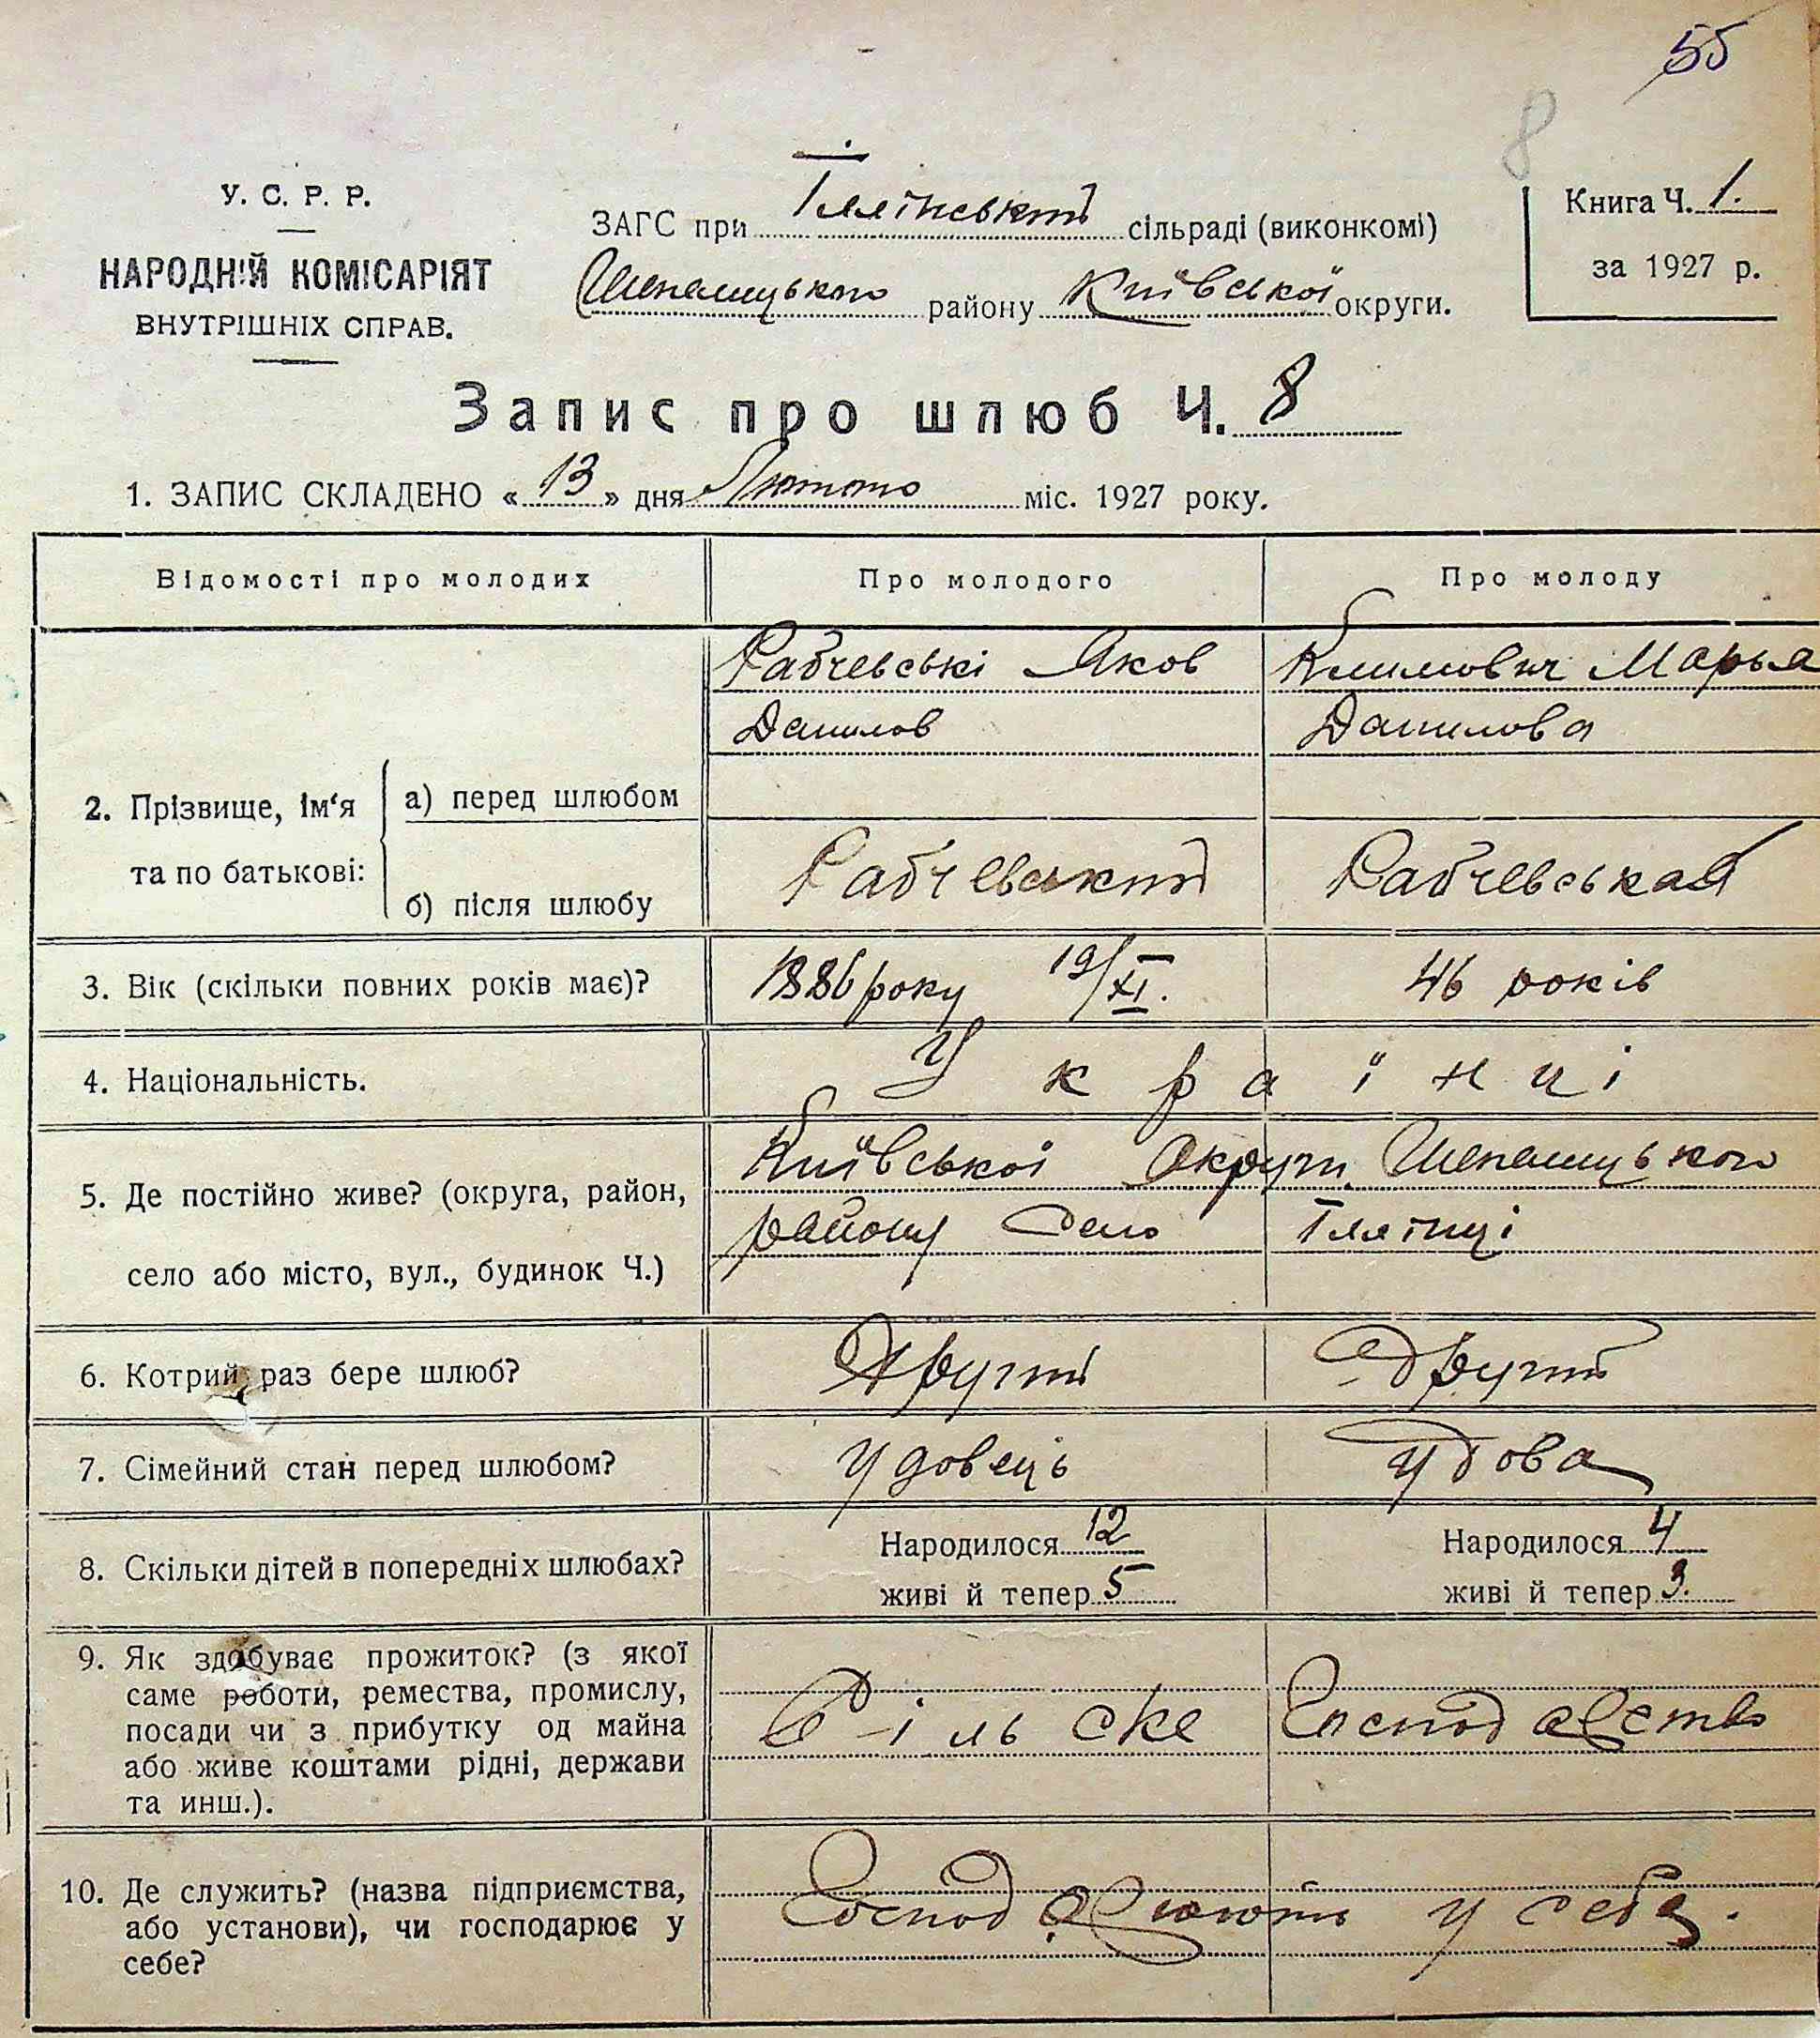 55
8
У. С. Р. Р.
НАРОДНІЙ КОМІСАРІЯТ
ВНУТРІШНІХ СПРАВ.
ЗАГС при сільраді (виконкомі)
району Київської округи.
Книга Ч. 1.
за 1927 р.
Запис про шлюб Ч. 8
1. ЗАПИС СКЛАДЕНО « 13 » дня Лютого міс. 1927 року.
Відомості про молодих Про молодого Про молоду
2. Прізвище, ім‘я та по батькові:
а) перед шлюбом
Рабчевські Яков
Данилов
Климович Марья
Данилова
б) після шлюбу
Рабчевский Рабчевськая
3. Вік (скільки повних років має)? 1886 року 19/XI. 46 років
4. Національність. Українці
5. Де постійно живе? (округа, район,
село або місто, вул., будинок Ч.)
Київськоі Округи
району Село
6. Котрий раз бере шлюб? Другий Другий
7. Сімейний стан перед шлюбом? Удовець удова
8. Скільки дітей в попередніх шлюбах?
Народилося 12 Народилося 4
живі й тепер 5 живі й тепер 3.
9. Як здобуває прожиток? (з якої
саме роботи, ремества, промислу,
посади чи з прибутку од майна
або живе коштами рідні, держави
та инш.).
Сільске Господарство
10. Де служить? (назва підприємства,
або установи), чи господарює у
себе?
Господарюють у себе.